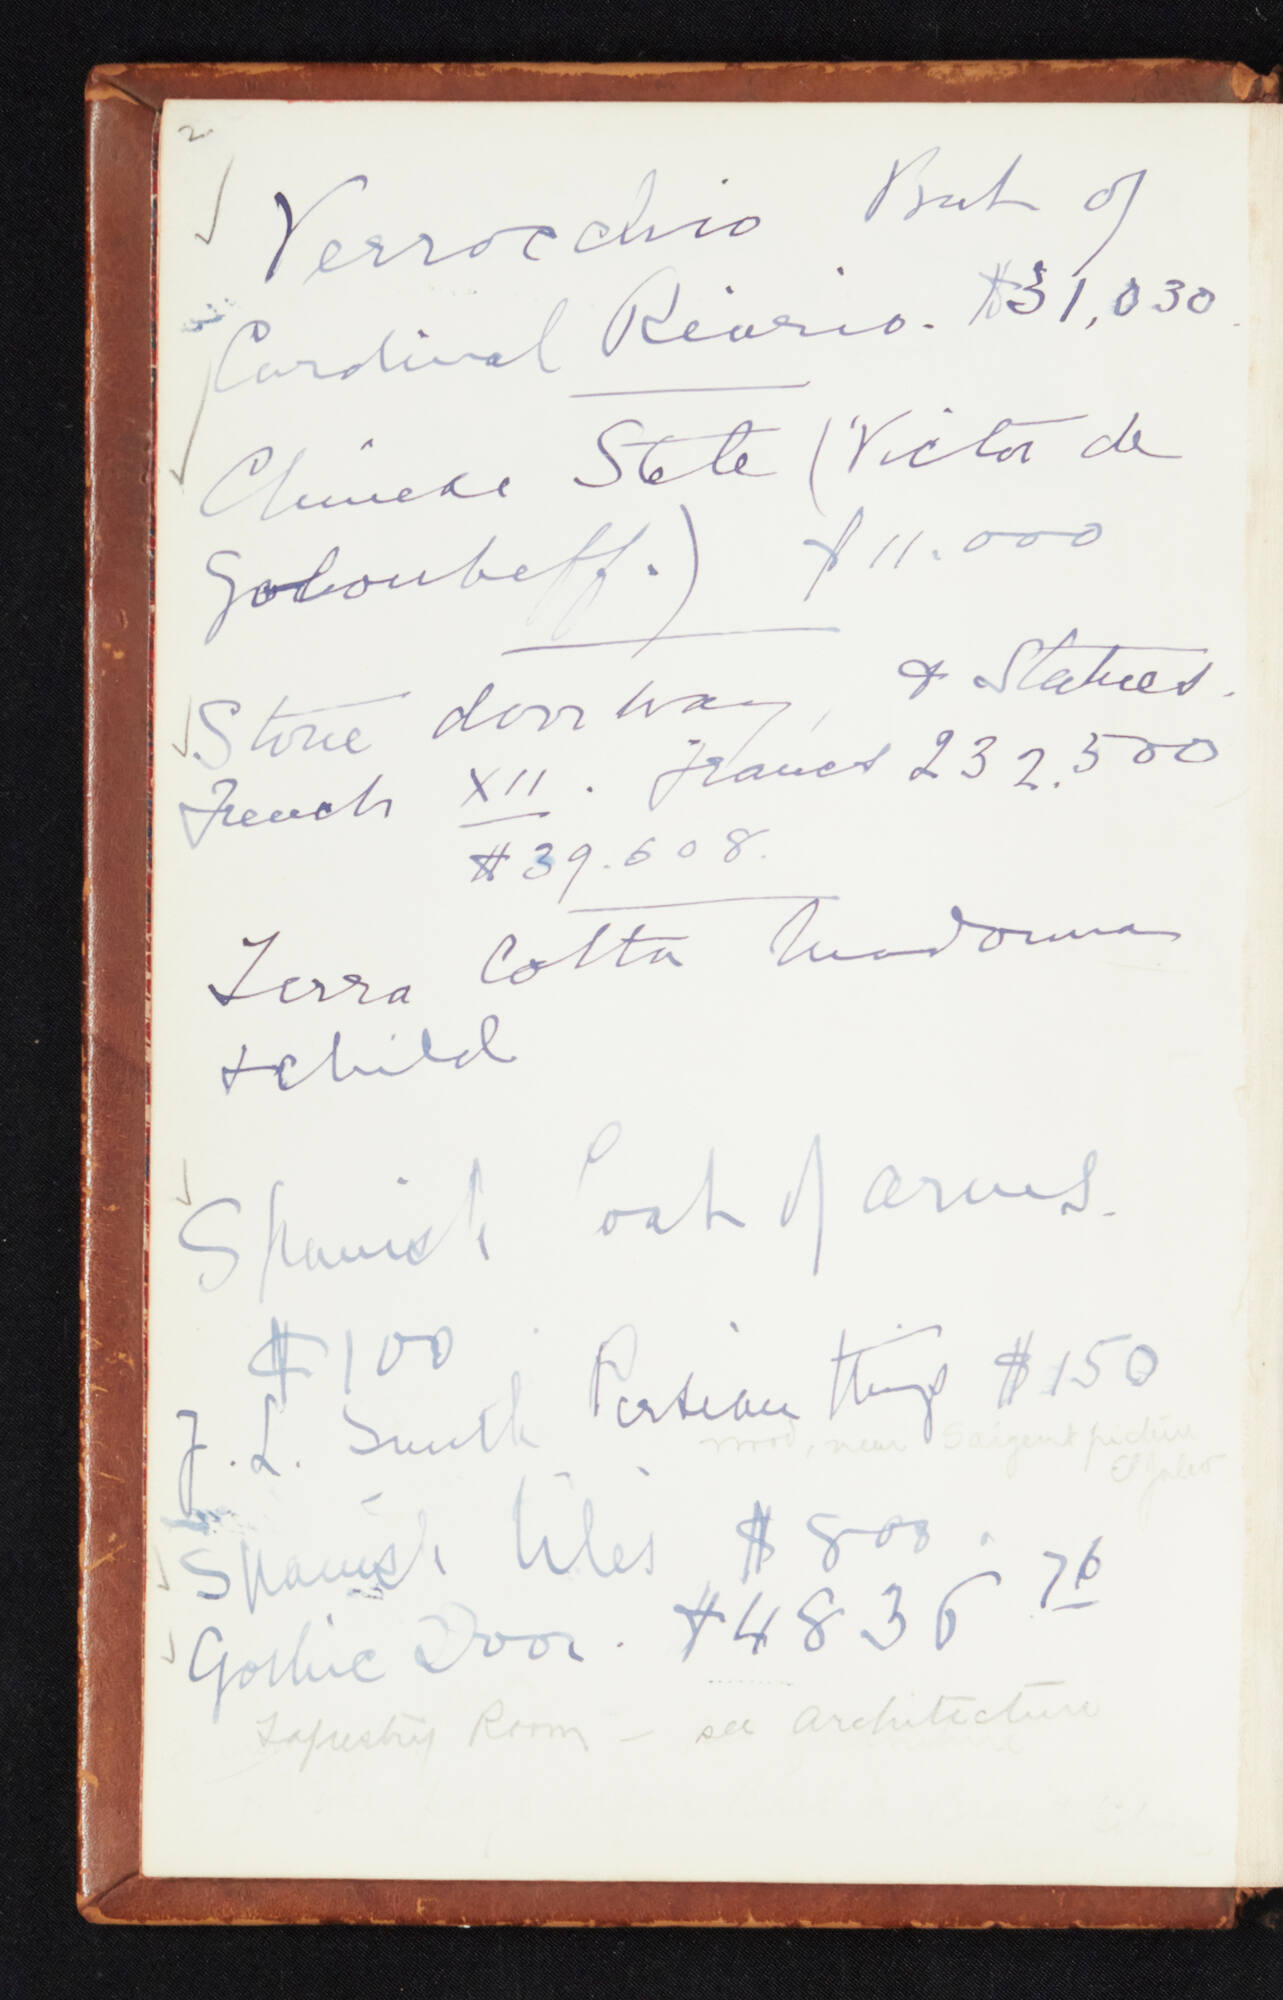 2.
Verrocchio Bust of
Cardinal Riario. $31,030.
Chinese Stele (Victor de
Goloubeff.) $11.000
Stone doorway, & Statues.
French XII. francs 232.500
$39.608.
Terra Cotta Madonna
+ child
Spanish Coat of arms.
$100
J. L. Smith Persian things $150
wood, near Sargent picture
El Jaleo
Spanish tiles $800.
Gothic Door. $4836 76
Tapestry Room – see Architecture